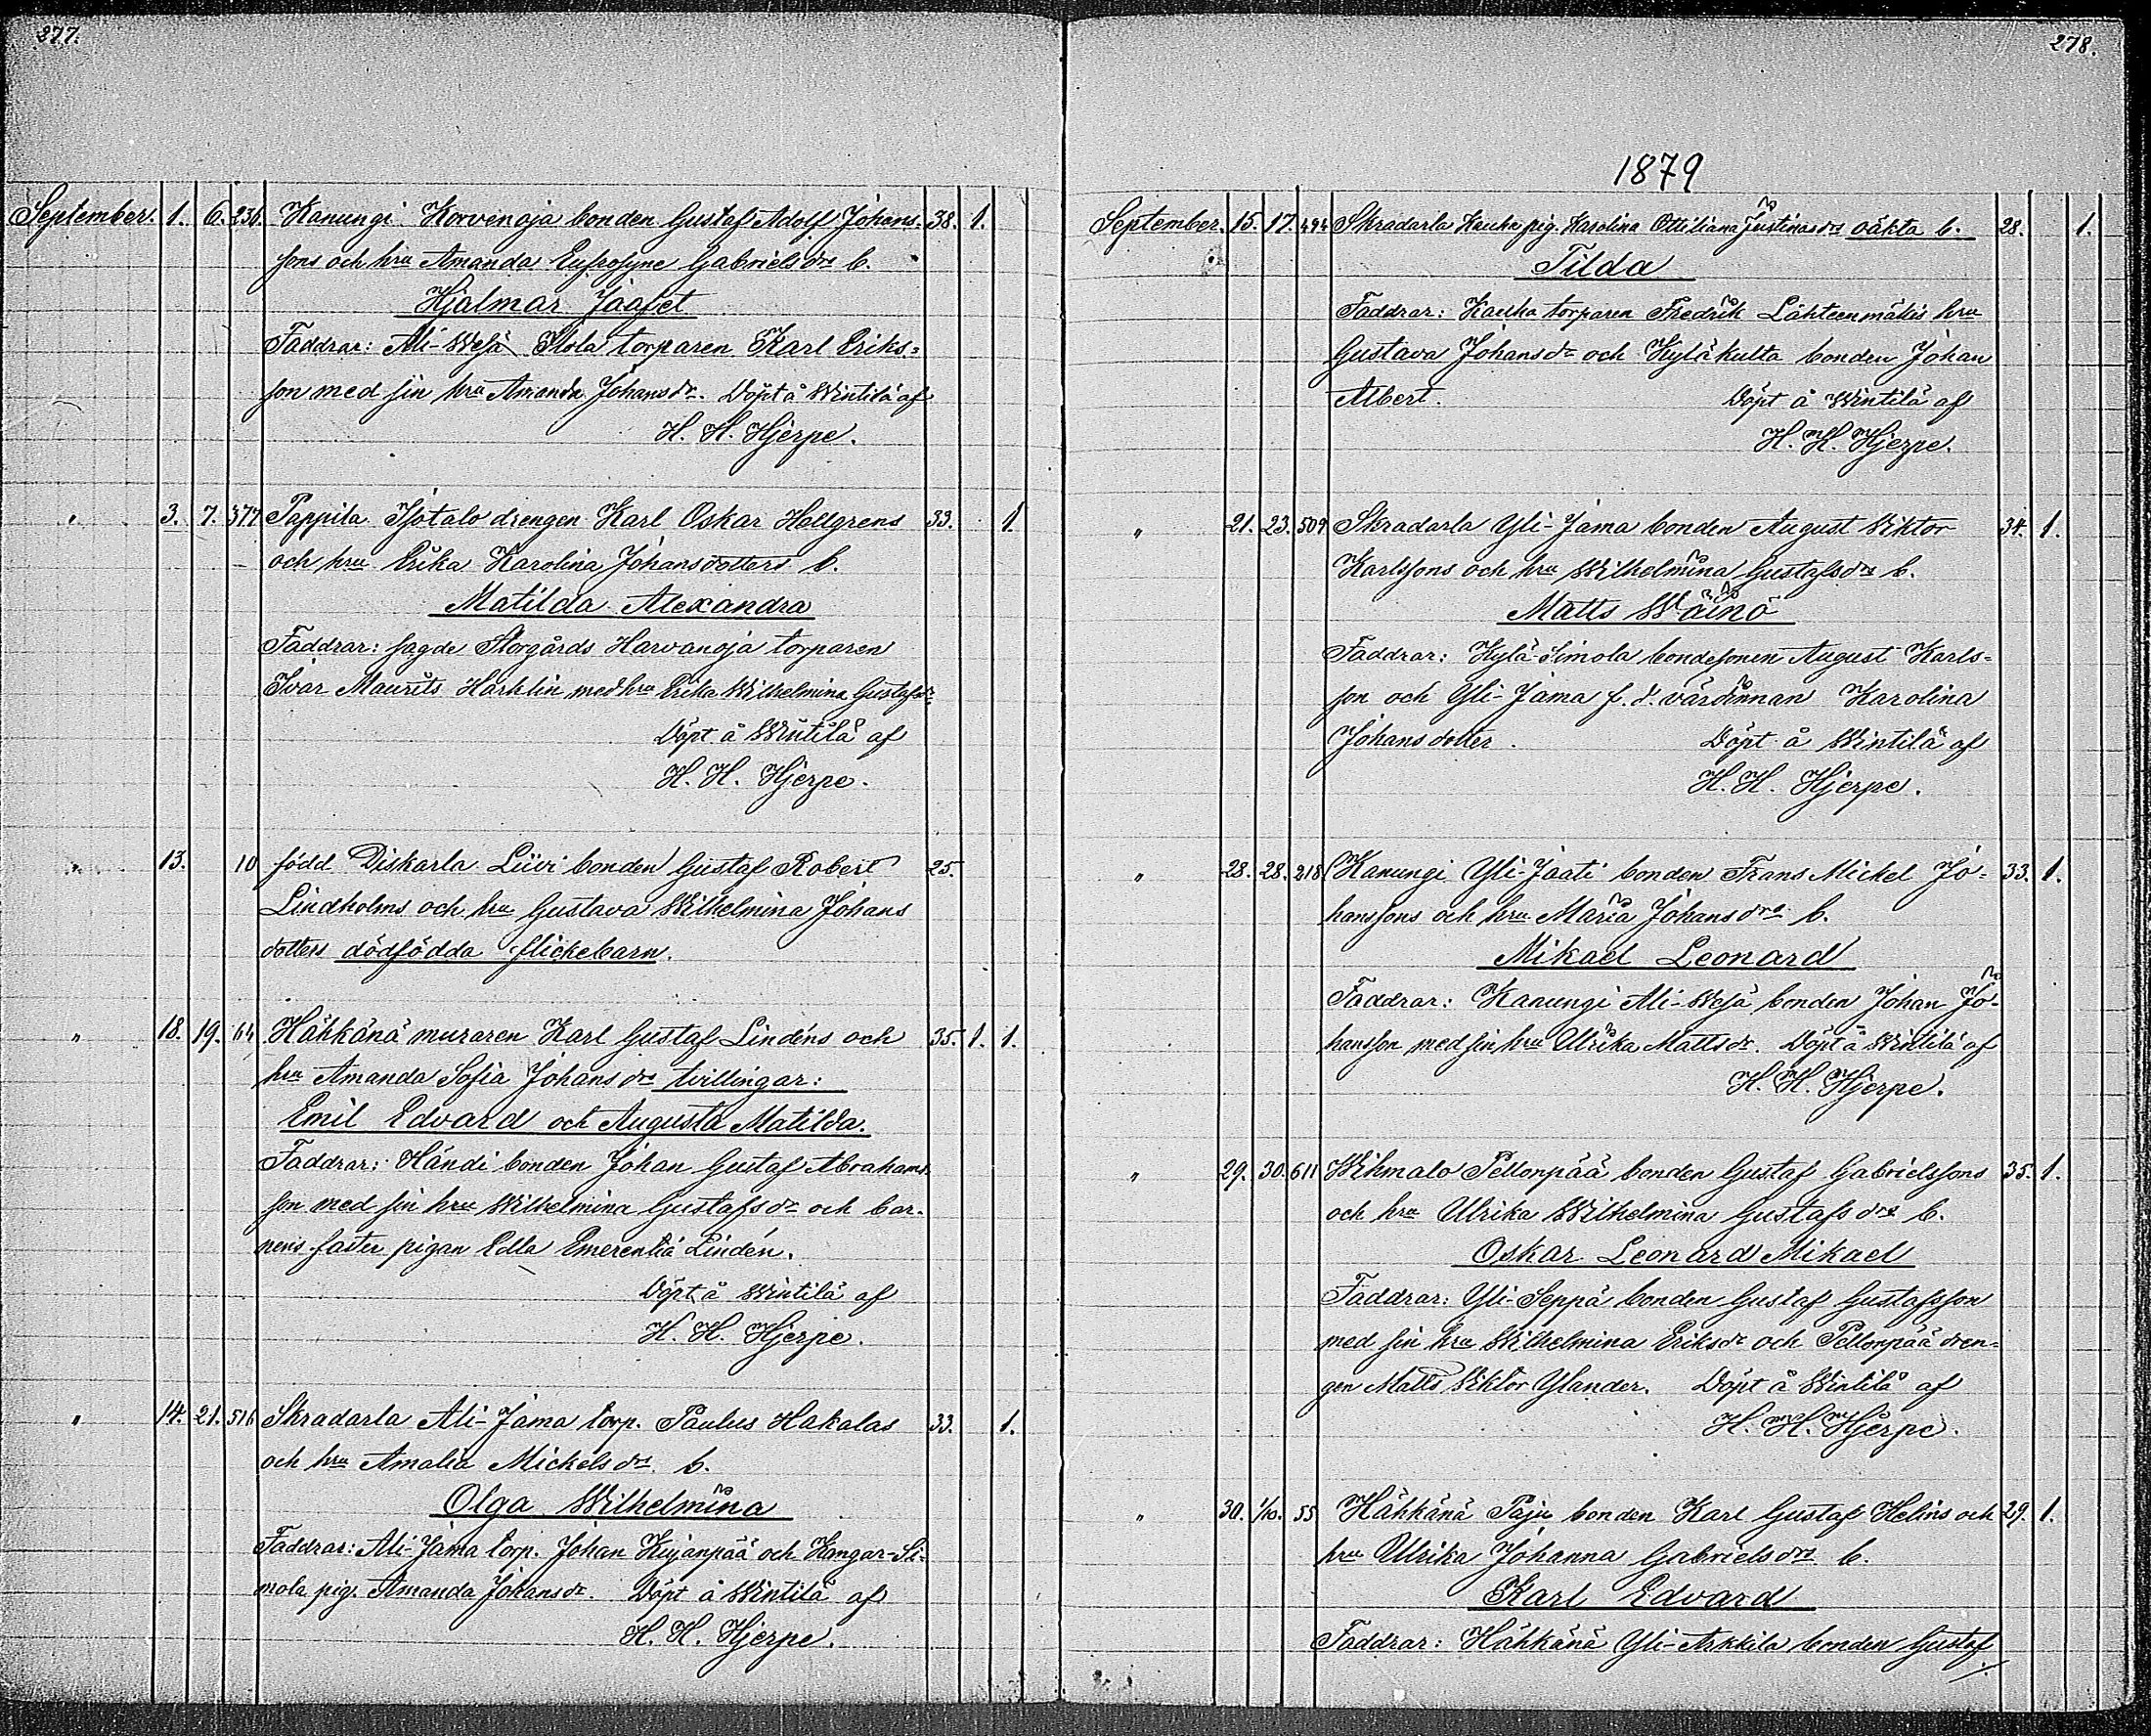 277.
September. 1. 6. 236. Kanungi Korvenoja bonden Gustaf Adolf Johans- 38. 1.
sons och hru Amanda Eufrosyne Gabrielsdrs b.
Hjalmar Jaafet
Faddrar: Ali-Wesä Stola torparen Karl Eriks=
son med sin hru Amanda Johansdr. Döpt å Wintilä af
H. H. Hjerpe.
" 3. 7. 377 Pappila Isotalo drengen Karl Oskar Hellgrens 33. 1.
och hru Erika Karolina Johansdotters b.
Matilda Alexandra
Faddrar: sagde Storgårds Harvanoja torparen
Ivar Maurits Harhlin med hru Erika Wilhelmina Gustafsdr
Döpt å Wintilä af
H. H. Hjerpe.
" 13. 10 född Diskarla Liivi bonden Gustaf Robert 25.
Lindholms och hru Gustava Wilhelmina Johans
dotters dödfödda flickebarn.
" 18. 19. 64 Hähkänä muraren Karl Gustaf Lindéns och 35. 1. 1.
hru Amanda Sofia Johansdrs tvillingar:
Emil Edvard och Augusta Matilda.
Faddrar: Händi bonden Johan Gustaf Abrahams
son med sin hru Wilhelmina Gustafsdr och bar-
nens faster pigan Edla Emerentia Lindén.
Döpt å Wintilä af
H. H. Hjerpe.
" 14. 21. 516 Skradarla Ali-Jama torp. Paulus Hakalas 33. 1.
och hru Amalia Mickelsdrs b.
Olga Wilhelmina
Faddrar: Ali-Jama torp. Johan Kujanpää och Kangar-Si-
mola pig. Amanda Johansdr. Döpt å Wintilä af
H. H. Hjerpe.
278.
1879
September. 15. 17. 494 Skradarla Kauha pig. Karolina Ottiliana Justinasdrs oäkta b. 28. 1.
Tilda
Faddrar: Kauha torparen Fredrik Lähteenmäkis hru
Gustava Johansdr och Kyläkulta bonden Johan
Albert. Döpt å Wintilä af
H. H. Hjerpe.
" 21. 23. 509 Skradarla Yli-Jama bonden August Wiktor 34. 1.
Karlssons och hru Wilhelmina Gustafsdrs b.
Matts Wäinö
Faddrar: Kylä-Simola bondesonen August Karls-
son och Yli-Jama f. d. värdinnan Karolina
Johansdotter. Döpt å Wintilä af
H. H. Hjerpe.
" 28. 28. 218 Kanungi Yli-Jaati bonden Frans Mickel Jo- 33. 1.
hanssons och hru Maria Johansdrs b.
Mikael Leonard
Faddrar: Kanungi Ali-Wesä bonden Johan Jo-
hansson med sin hru Ulrika Mattsdr. Döpt å Wintilä af
H. H. Hjerpe.
" 29. 30. 611 Wihmalo Pellonpää bonden Gustaf Gabrielssons 35. 1.
och hru Ulrika Wilhelmina Gustafsdrs b.
Oskar Leonard Mikael
Faddrar: Yli-Seppä bonden Gustaf Gustafsson
med sin hru Wilhelmina Eriksdr och Pellonpää dren-
gen Matts Wiktor Ylander. Döpt å Wintilä af
H. H. Hjerpe.
" 30. 1/10. 55 Hähkänä Paju bonden Karl Gustaf Helins och 29. 1.
hru Ulrika Johanna Gabrielsdrs b.
Karl Edvard
Faddrar: Hähkänä Yli-Arkkila bonden Gustaf